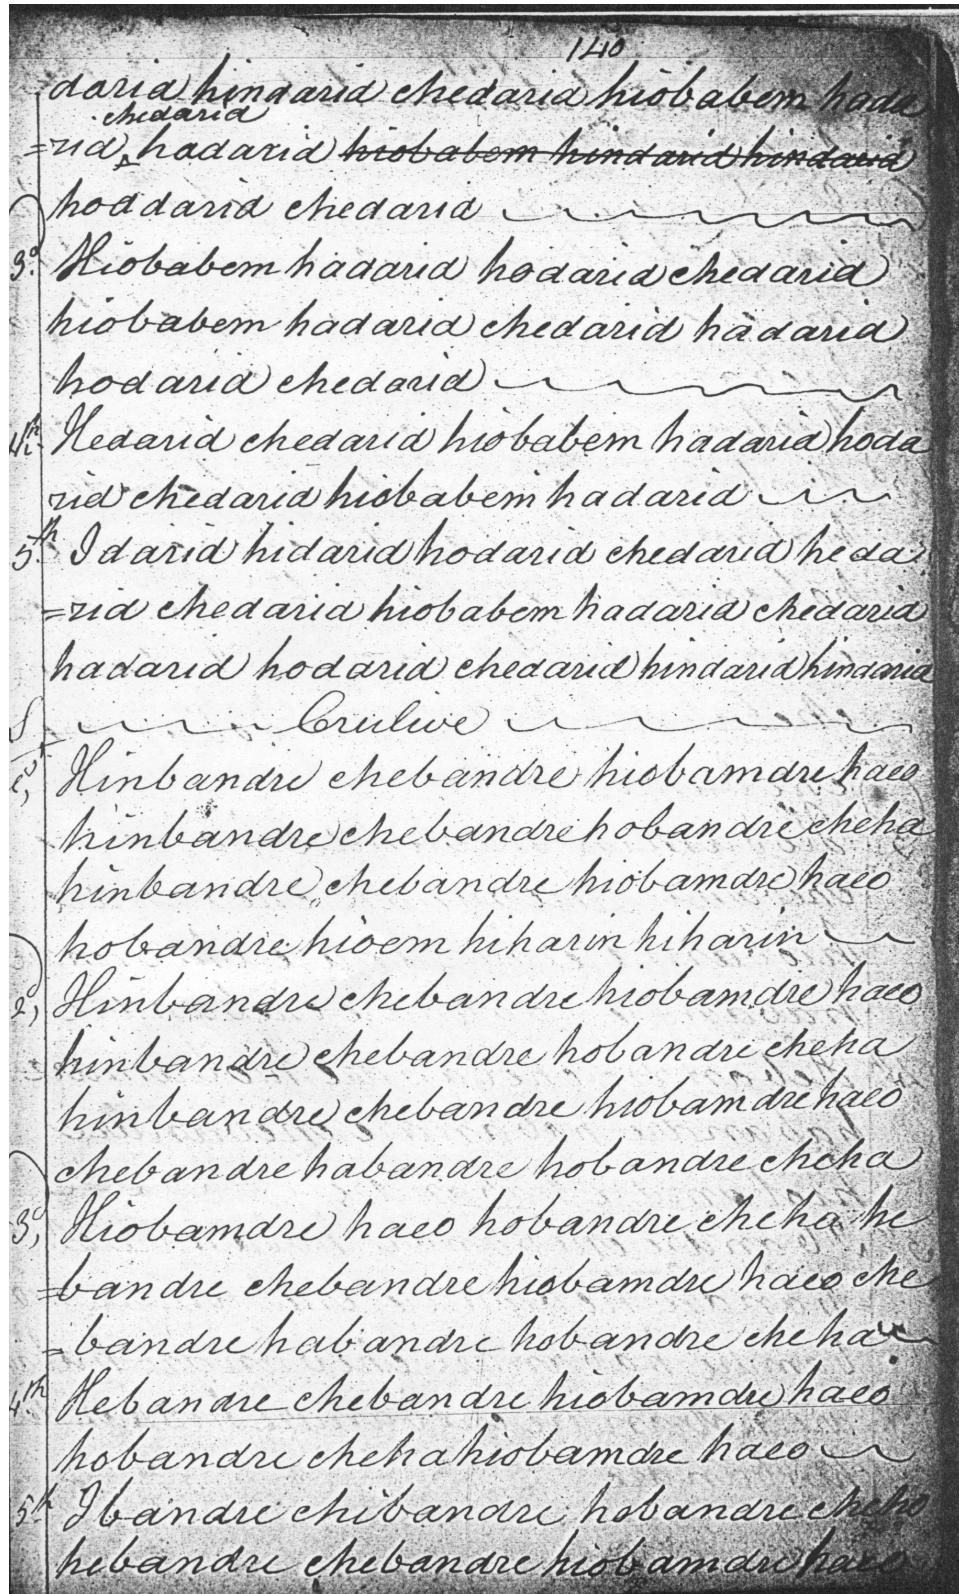 140
darid hindarid chedarid hiobabem hada
chedarid
=rid ‸ hadarid hiobabem hindarid hindarid
hoddarid chedarid
3d. Hiobabem hadarid hodarid chedarid
hiobabem hadarid chedarid hadarid
hodarid chedarid
4th. Hedarid chedarid hiobabem hadarid hoda
rid chedarid hiobabem hadarid
5th. Idarid hidarid hodarid chedarid heda
=rid chedarid hiobabem hadarid chedarid
hadarid hodarid chedarid hindarid hindarid
Crulive
Hinbandre chebandre hiobamdre haeo
hinbandre chebandre hobandre cheha
hinbandre chebandre hiobamdre haeo
hobandre hioem hiharin hiharin
2d, Hinbandre chebandre hiobamdre haeo
hinbandre chebandre hobandre cheha
hinbandre chebandre hiobamdre haeo
chebandre habandre hobandre cheha
3d, Hiobamdre haeo hobandre cheha he
=bandre chebandre hiobamdre haeo che
=bandre habandre hobandre cheha
4th. Hebandre chebandre hiobamdre haeo
hobandre cheha hiobamdre haeo
5th Ibandre chibandre hobandre cheho
hebandre chebandre hiobamdre haeo